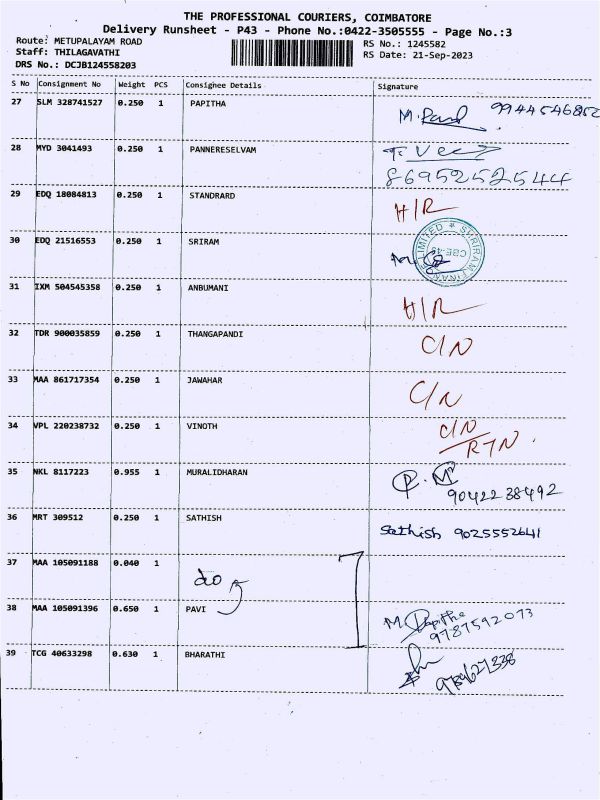 THE PROFESSIONAL COURIERS, COIMBATORE
Delivery Runsheet - P43 - Phone No.:0422-3505555 - Page No.:3
Route: METUPALAYAM ROAD RS No.: 1245582
Staff: THILAGAVATHI RS Date: 21-Sep-2023
DRS No.: DCJB124558203
S No Consignment No Weight PCS Consignee Details Signature
27 SLM 328741527 0.250 1 PAPITHA 9944546852
28 MYD 3041493 0.250 1 PANNERESELVAM
8695252544
29 EDQ 18084813 0.250 1 STANDRARD H/R
30 EDQ 21516553 0.250 1 SRIRAM SHRIRAM FINANCE LIMITED
31 IXM 504545358 0.250 1 ANBUMANI H/R
32 TDR 900035859 0.250 1 THANGAPANDI C/N
33 MAA 861717354 0.250 1 JAWAHAR C/N
34 VPL 220238732 0.250 1 VINOTH C/N
RTN.
35 NKL 8117223 0.955 1 MURALIDHARAN
9042238492
36 MRT 309512 0.250 1 SATHISH Sathish 9025552641
37 MAA 105091188 0.040 1
do
38 MAA 105091396 0.650 1 PAVI M. Papitha
9787592073
39 TCG 40633298 0.630 1 BHARATHI